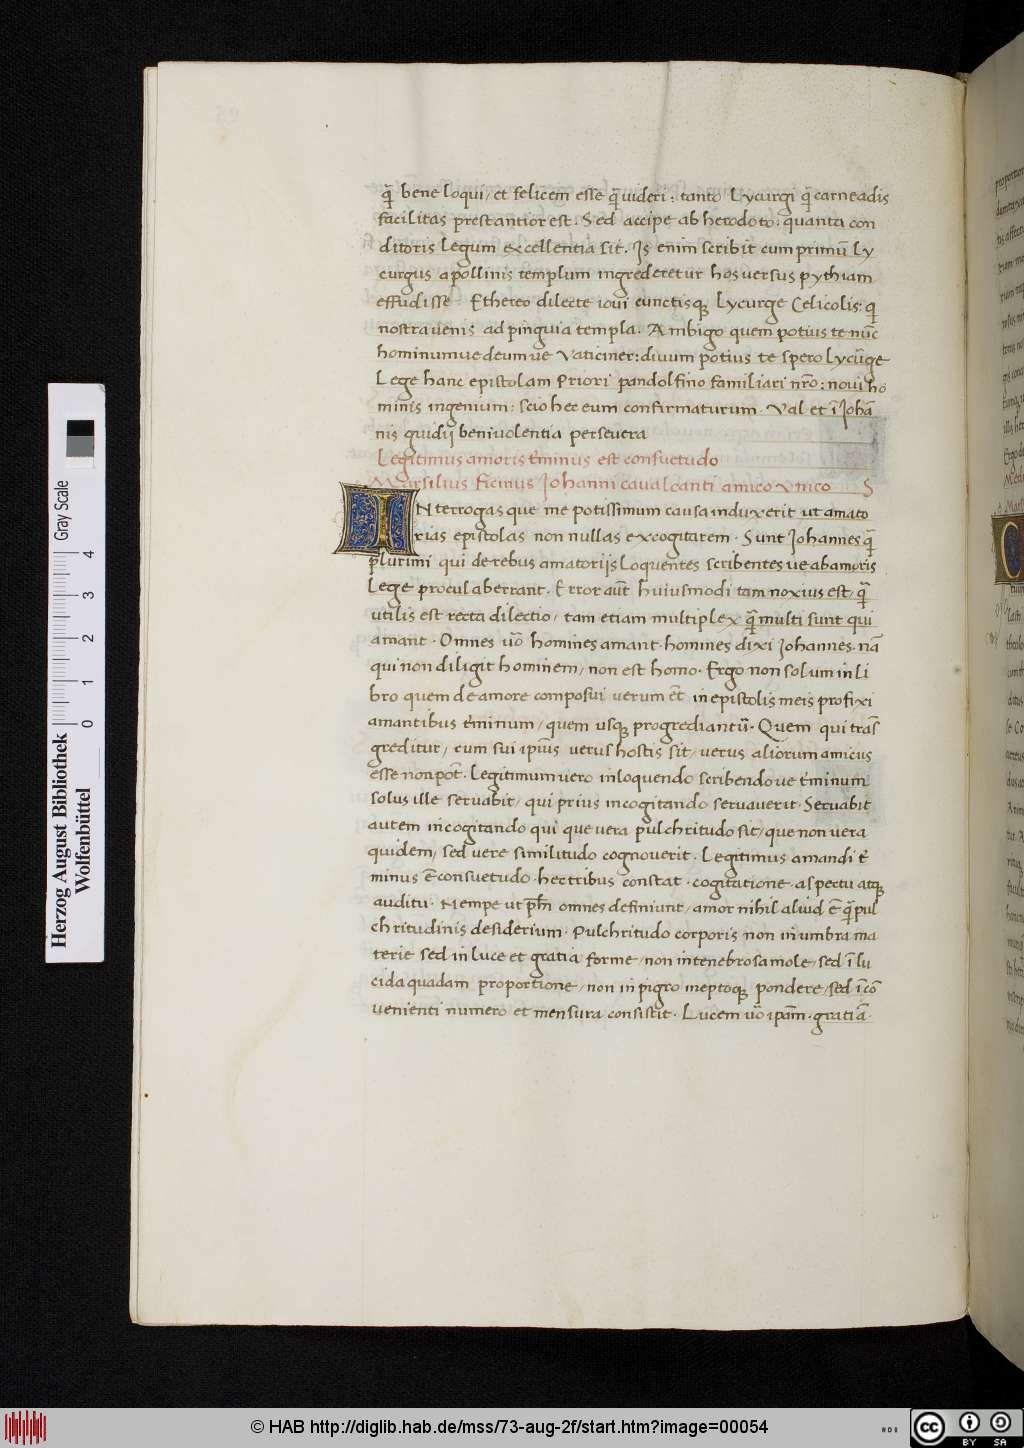 quā bene loqui, et felicem esse quā uideri: tanto Lycurgi quā carneadis
facilitas prestantior est. Sed accipe ab herodoto. quanta con
ditoris legum excellentia sit. Is enim scribit cum primū Ly
curgus apollinis templum ingrederetur hos uersus pythiam
effudisse Ethereo dilecte ioui cunctisqꝫ Lycurge Celicolis: qui
nostra uenis ad pinguia templa. Ambigo quem potius te nūc
hominum ue deum ue Vaticiner: diuum potius te spero lycūrge
Lege hanc epistolam Priori pandolfino familiari nr̄o: noui ho
minis ingenium: scio hec eum confirmaturum. Val et ī Johā
nis guidij beniuolentia perseuera
Legitimus amoris t̄minus est consuetudo
Marsilius ficinus Johanni caualcanti amico vnico S
INterrogas que me potissimum causa induxerit ut amato
rias epistolas non nullas excogitarem. Sunt Johannes quā
plurimi qui de rebus amatorijs Loquentes scribentes ue ab amoris
Lege procul aberrant. Error aūt huiusmodi tam noxius est, quā
utilis est recta dilectio, tam etiam multiplex quā multi sunt qui
amant. Omnes uō homines amant. homines dixi Johannes. nā
qui non diligit hominem, non est homo. Ergo non solum in li
bro quem de amore composui uerum et̄ in epistolis meis profixi
amantibus t̄minum, quem usqꝫ progrediantur. Quem qui trās
greditur, cum sui ip̄ius uerus hostis sit, uerus aliorum amicus
esse non pōt. Legitimum uero in loquendo scribendo ue t̄minum
solus ille seruabit, qui prius in cogitando seruauerit. Seruabit
autem in cogitando qui que uera pulchritudo sit, que non uera
quidem, sed uere similitudo cognouerit. Legitimus amandi t̄
minus ē consuetudo. hec tribus constat. cogitatione. aspectu atqꝫ
auditu. Nempe ut ph̄i omnes definiunt, amor nihil aliud ē quā pul
chritudinis desiderium. Pulchritudo corporis non in umbra ma
terie sed in luce et gratia forme, non in tenebrosa mole, sed ī lu
cida quadam proportione, non in pigro ineptoqꝫ pondere, sed ī cō
uenienti numero et mensura consistit. Lucem uō ip̄am. gratiā.
Herzog August Bibliothek
Wolfenbüttel
0 1 2 3 4
Gray Scale
© HAB http://diglib.hab.de/mss/73-aug-2f/start.htm?image=00054
cc BY SA